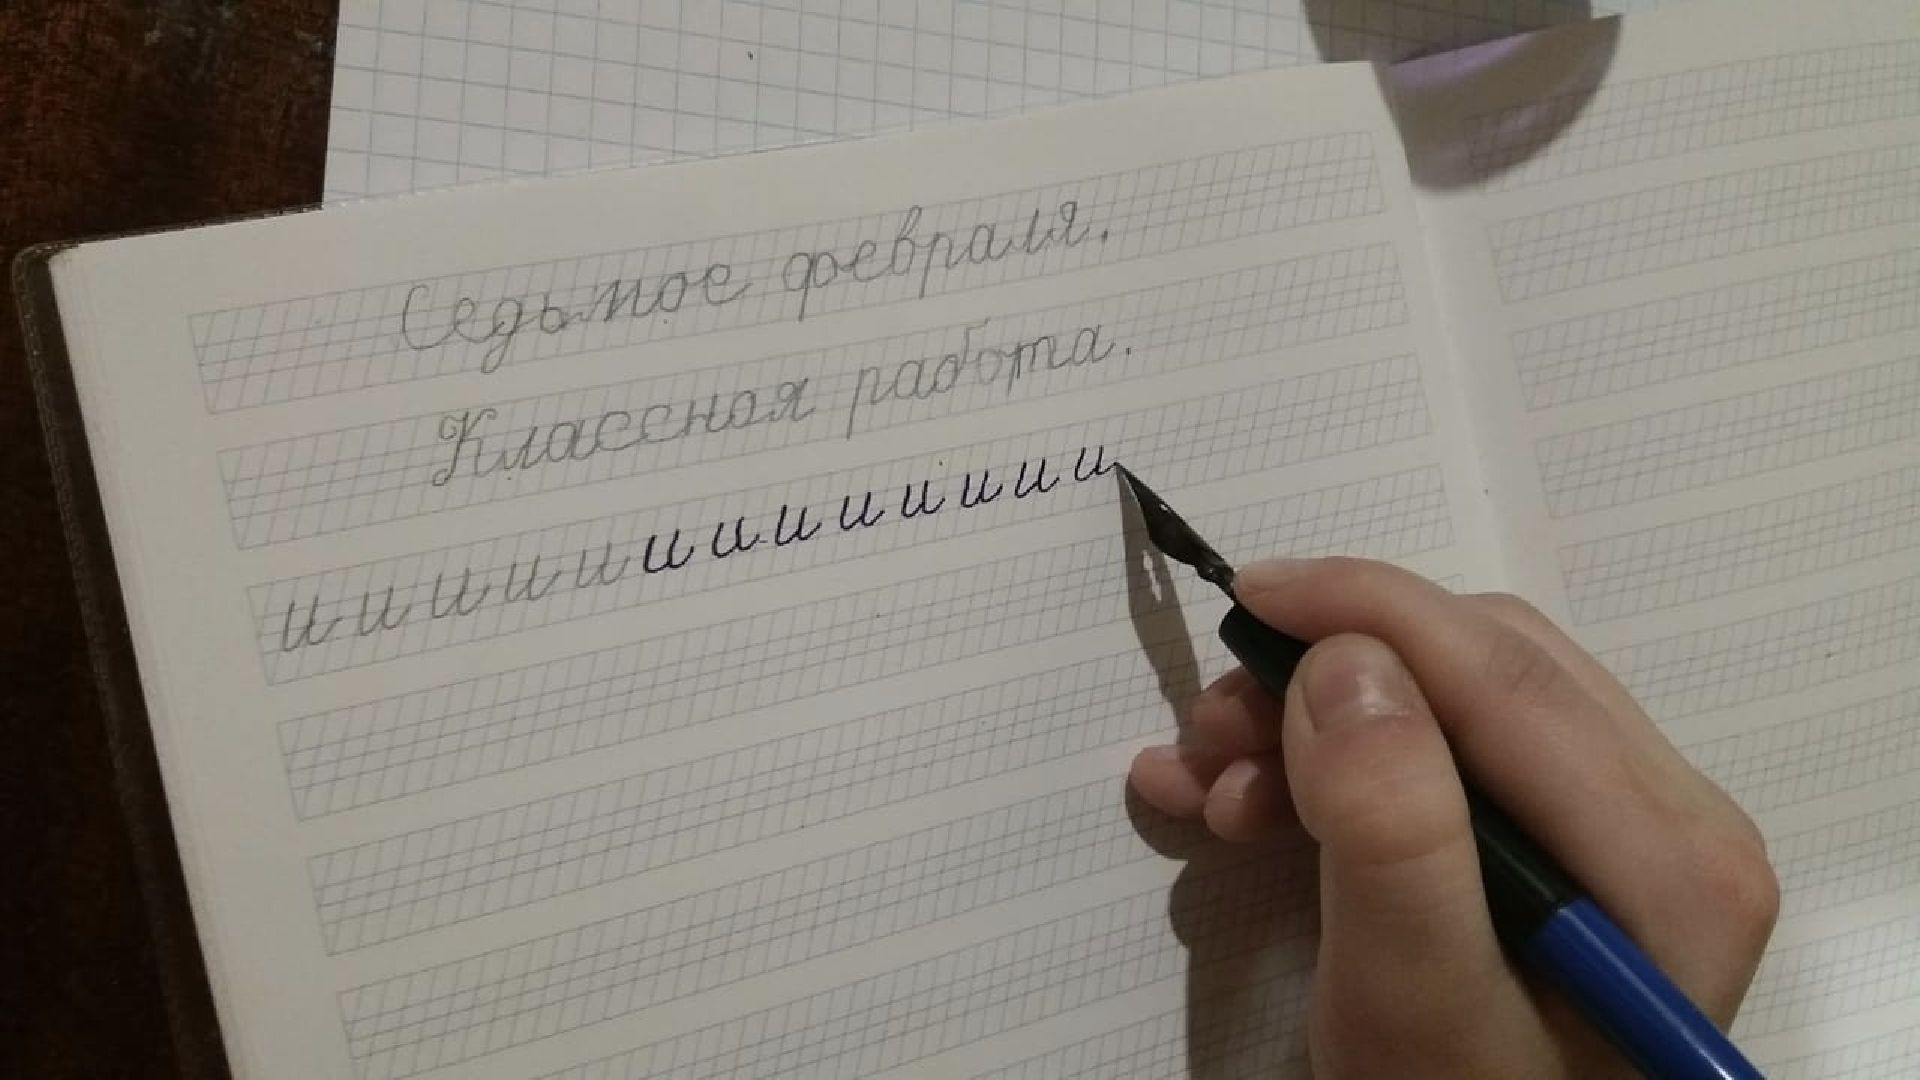 Седьмое февраля.
Классная работа.
и и и и и и и и и и и и и